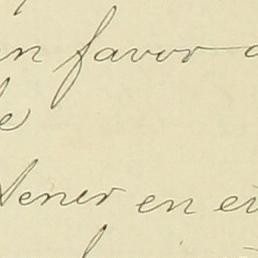 en favor
tener en